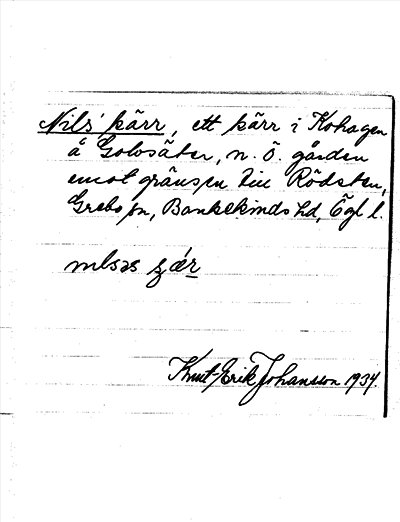 Nils' kärr, ett kärr i Kohagen
å Golosäter, n. ö. gården
emot gränsen till Rödsten,
Grebo sn, Bankekinds hd, Ögl l.
Knut-Erik Johansson 1934.